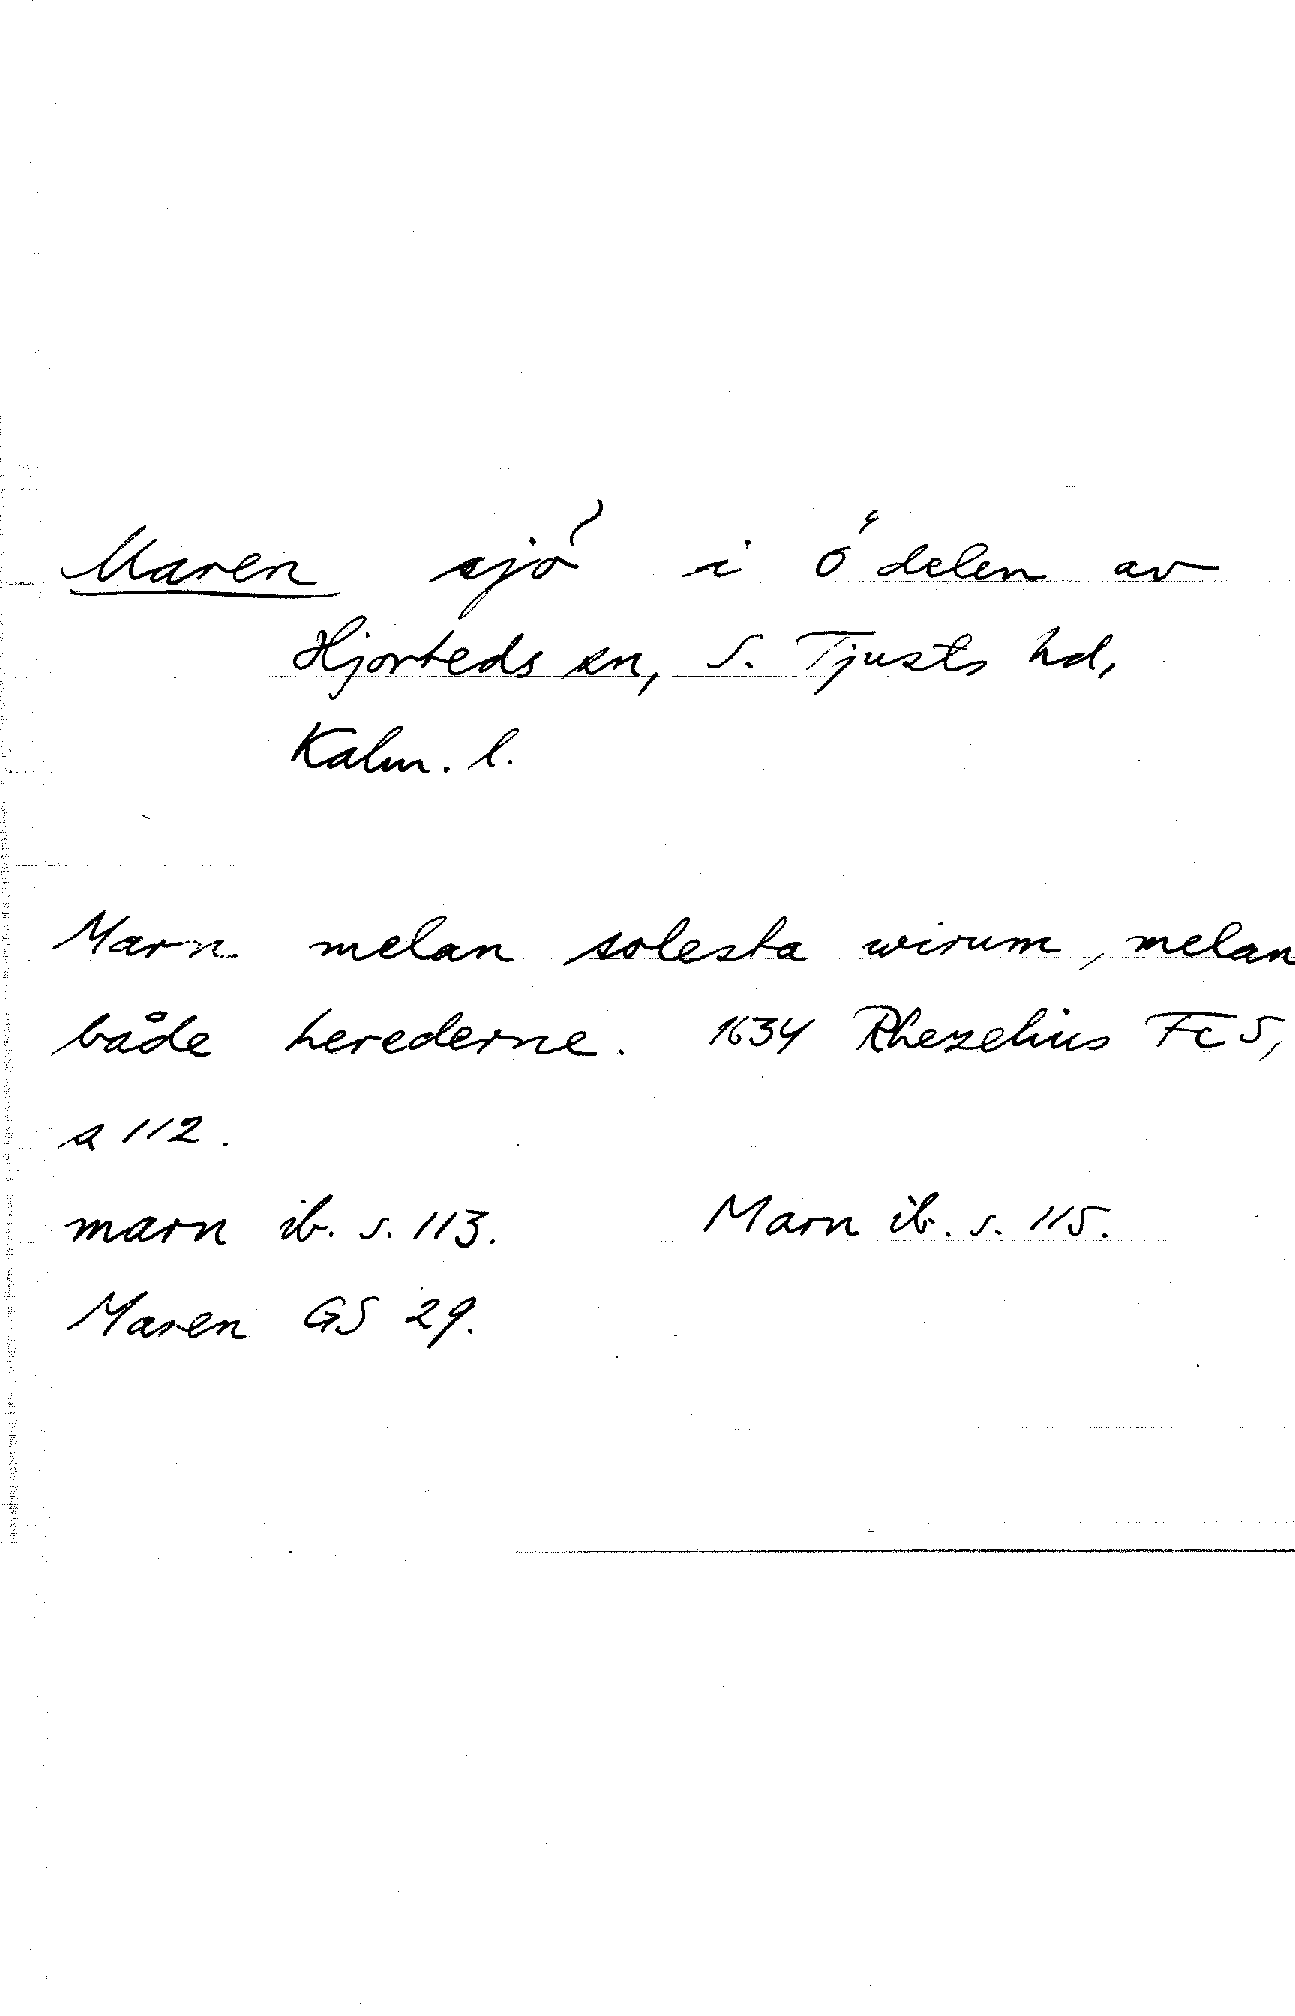 Maren sjö i ö delen av
Hjorteds sn, S. Tjusts hd,
Kalm. l.
Marn melan solesta wirum, melan
både herederne. 1634 Rhezelius Fc 5,
s 112.
marn ib. s. 113. Marn ib. s. 115.
Maren GS 29.